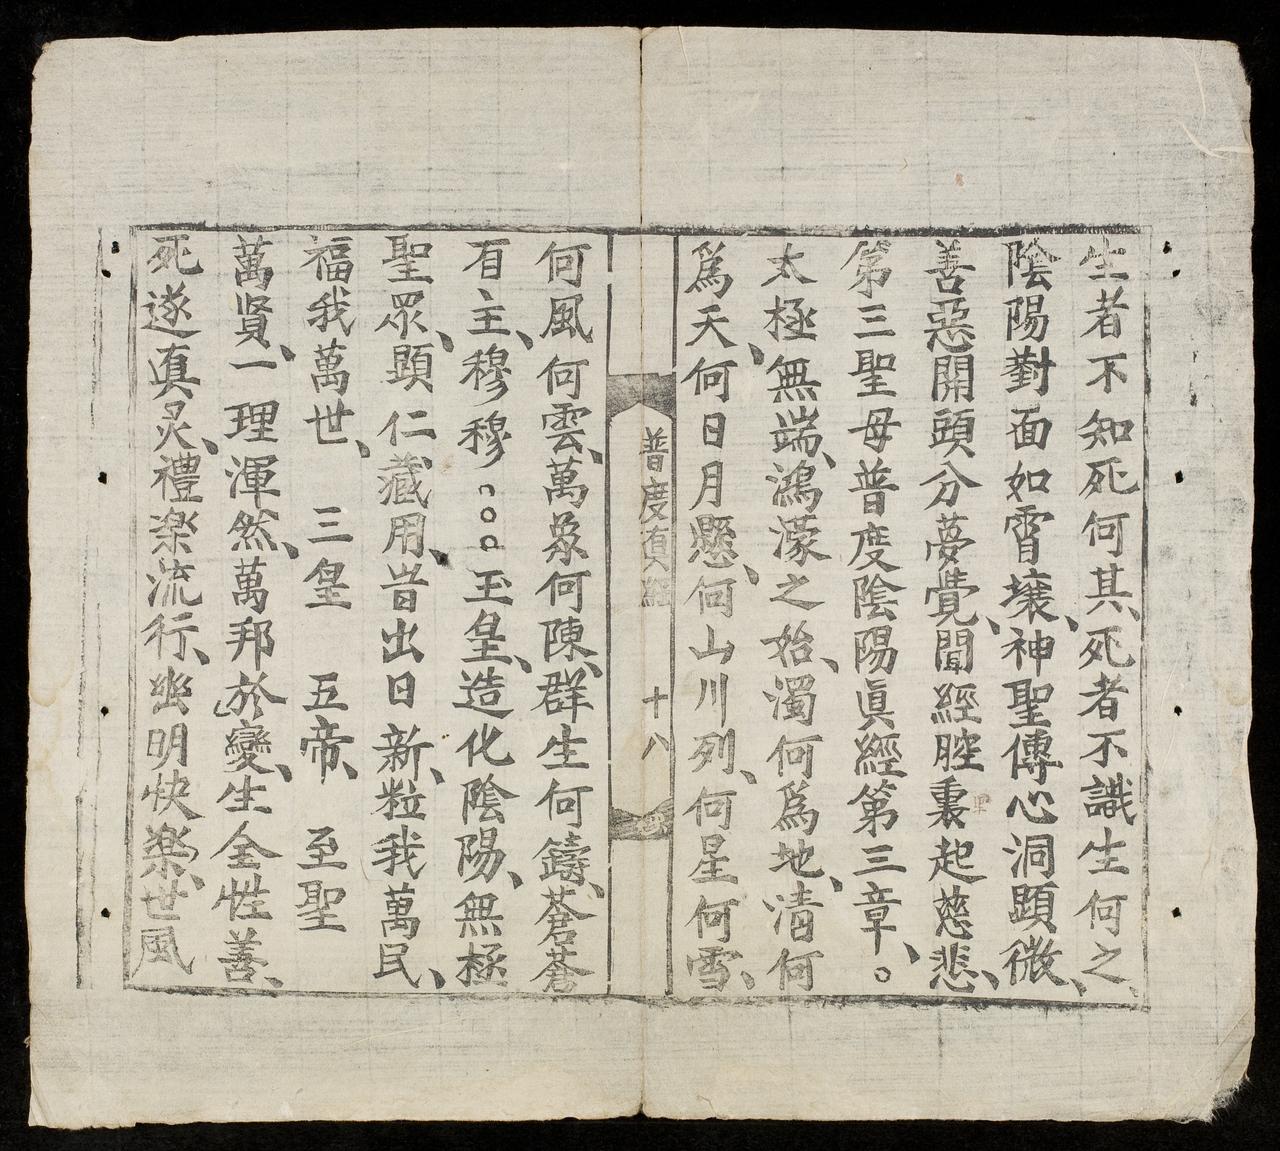 生者不知死何其、死者不識生何之、
陰陽對面如霄壤、神聖傳心洞顕微、
善惡開頭分夢覺、聞經腔裏起慈悲、
第三聖母普度陰陽眞經第三章、。
太極無端、鴻濛之始、濁何爲地、清何
爲天、何日月懸、何山川列、何星何雪、
普度真經 十八
何風何雲、萬象何陳、群生何鑄、蒼蒼
有主、穆穆。。。玉皇、造化陰陽、無極
聖眾、顕仁藏用、旹出日新、粒我萬民、
福我萬世、 三皇 五帝、 至聖
萬賢、一理渾然、萬邦於變、生全性善、
死遂真灵、禮楽流行、幽明快楽、世風